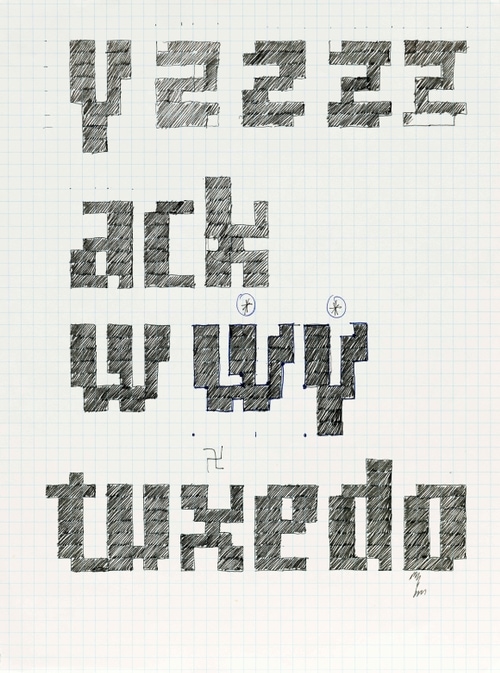 yzzzz
ack
wwy
tuxedo